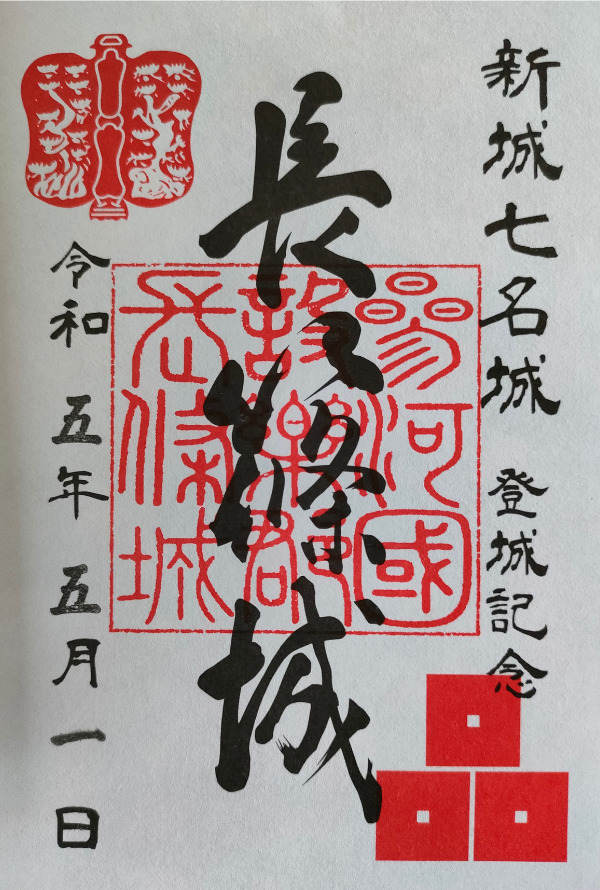 新城七名城 登城記念
長篠城
參河國
設樂郡
長篠城
令和 五年 五月 一日